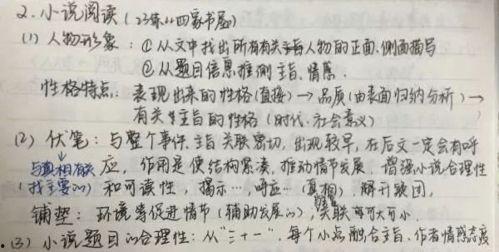 2. 小说阅读（23练 《四季书屋》
(1) 人物形象：① 从文中找出所有有关于每人物的正面、侧面描写
② 从题目信息推测主旨、情感.
性格特点：表现出来的性格(直接) → 品质(由表面归纳分析) →
有关主旨的性格 (时代、社会意义)
(2) 伏笔：与整个事件、主旨关联密切, 出现较早, 在后文一定会有呼
与真相有关 应, 作用是使结构紧凑, 推动情节发展. 增强小说合理性
(找主要的) 和可读性, 揭示… 呼应… (真相), 解开谜团,
铺垫：环境等促进情节 (辅助发展的), 关联可大可小.
(3) 小说题目的合理性：从"三十一", 每个小点融合主旨, 作者情感态度